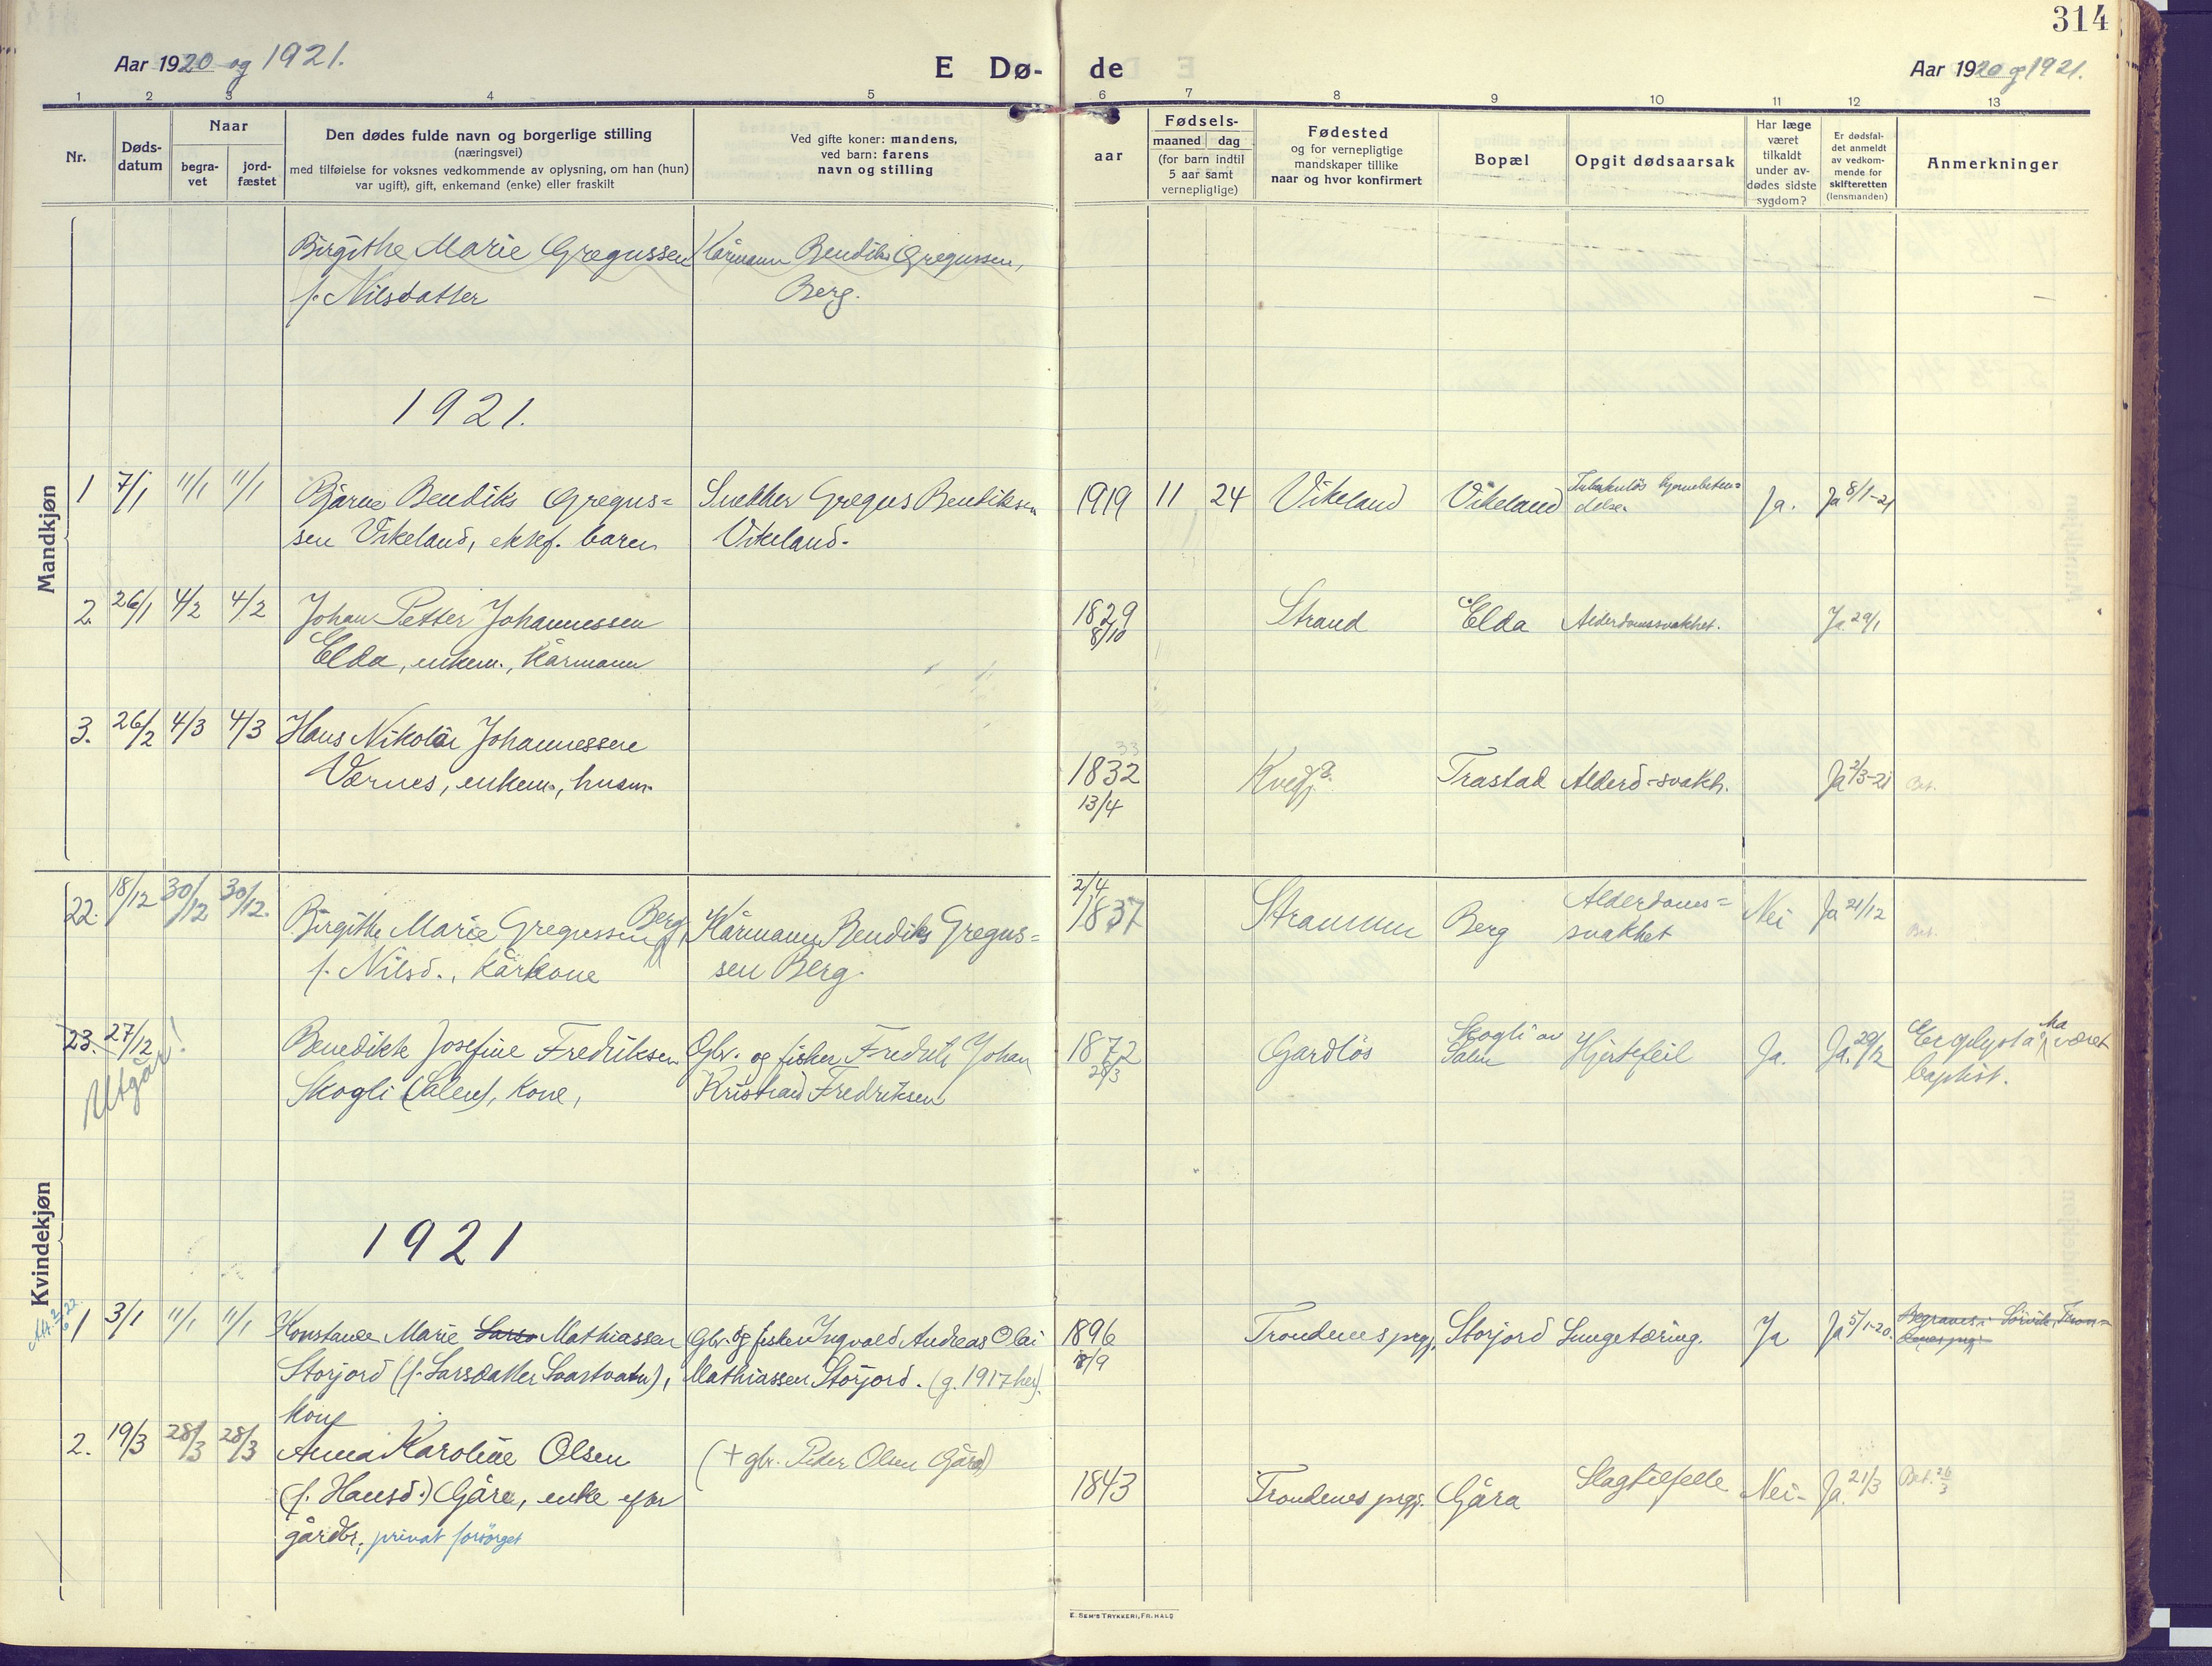 314
Aar 1920 og 1921.
E Dø- de
Aar 1920 og 1921.
1 2 3 4 5 6 7 8 9 10 11 12 13
Nr.
Døds-
datum
Naar
begra-
vet
jord-
fæstet
Den dødes fulde navn og borgerlige stilling
(næringsvei)
med tilføielse for voksnes vedkommende av oplysning, om han (hun)
var ugift), gift, enkemand (enke) eller fraskilt
Ved gifte koner: mandens,
ved barn: farens
navn og stilling
aar
Fødsels-
maaned dag
(for barn indtil
5 aar samt
vernepligtige)
Fødested
og for vernepligtige
mandskaper tillike
naar og hvor konfirmert
Bopæl
Opgit dødsaarsak
Har læge
været
tilkaldt
under av-
dødes sidste
sygdom?
Er dødsfal-
det anmeldt
av vedkom-
mende for
skifteretten
(lensmanden)
Anmerkninger
Birgithe Marie Gregussen Kårmann Bendiks Gregussen,
f. Nilsdatter Berg.
1921.
Mandkjøn
1 7/1 11/1 11/1 Bjarne Bendiks Gregus= Snekker Gregus Bendiksen 1919 11 24 Vikeland Vikeland Tuberkuløs hjernebeten= Ja. Ja 8/1-21
sen Vikeland, ektef. barn Vikeland. delse.
2. 26/1 4/2 4/2 Johan Petter Johannessen 1829 Strand Elda Alderdomssvakhet. Ja 29/1
8/10
Elda, enkem., kårmann
3. 26/2 4/3 4/3 Hans Nikolai Johannessen
33
Værnes, enkem., husm. 1832 Kvedfj. Trastad Alderd-svakh. Ja 2/3-21 Bet.
13/4
22. 18/12 30/12 30/12. Birgithe Marie Gregussen Berg, Kårmann Bendiks Gregus= 2/4 1837 Straumen Berg Alderdoms= Nei Ja 21/12 Bet.
svakhet
f. Nilsd., kårkone sen Berg.
23. 27/12 Benedikte Josefine Fredriksen Gbr. og fisker Fredrik Johan 1872 Gardløs Skogli av Hjertefeil Ja. Ja. 29/12 Ha været
28/3 Salen
Skogli (Salen), kone, Kristian Fredriksen baptist.
Utgår!
Kvindekjøn
1921
1 3/1 11/1 11/1 Konstance Marie Larss Mathiassen Gbr. og fisker Ingvald Andreas Olai 1896 Trondenes prgj. Storjord Lungetæring. Ja Ja 5/1-20. Begraves i Sörvik, Tron=
8/9 denes prgj.
Storjord (f. Larsdatter), Mathiassen Storjord. (g. 1917 her).
kone
2. 19/3 28/3 28/3 Anna Karoline Olsen (+ gbr. Peder Olsen Gåra)
(f. Hansd.) Gåra, enke efter 1843 Trondenes prgj. Gåra Slagtilfelle Nei- Ja. 21/3 Bet. 26/3
gårdbr., privat forsörget
E. SEM'S TRYKKERI, FR.HALD